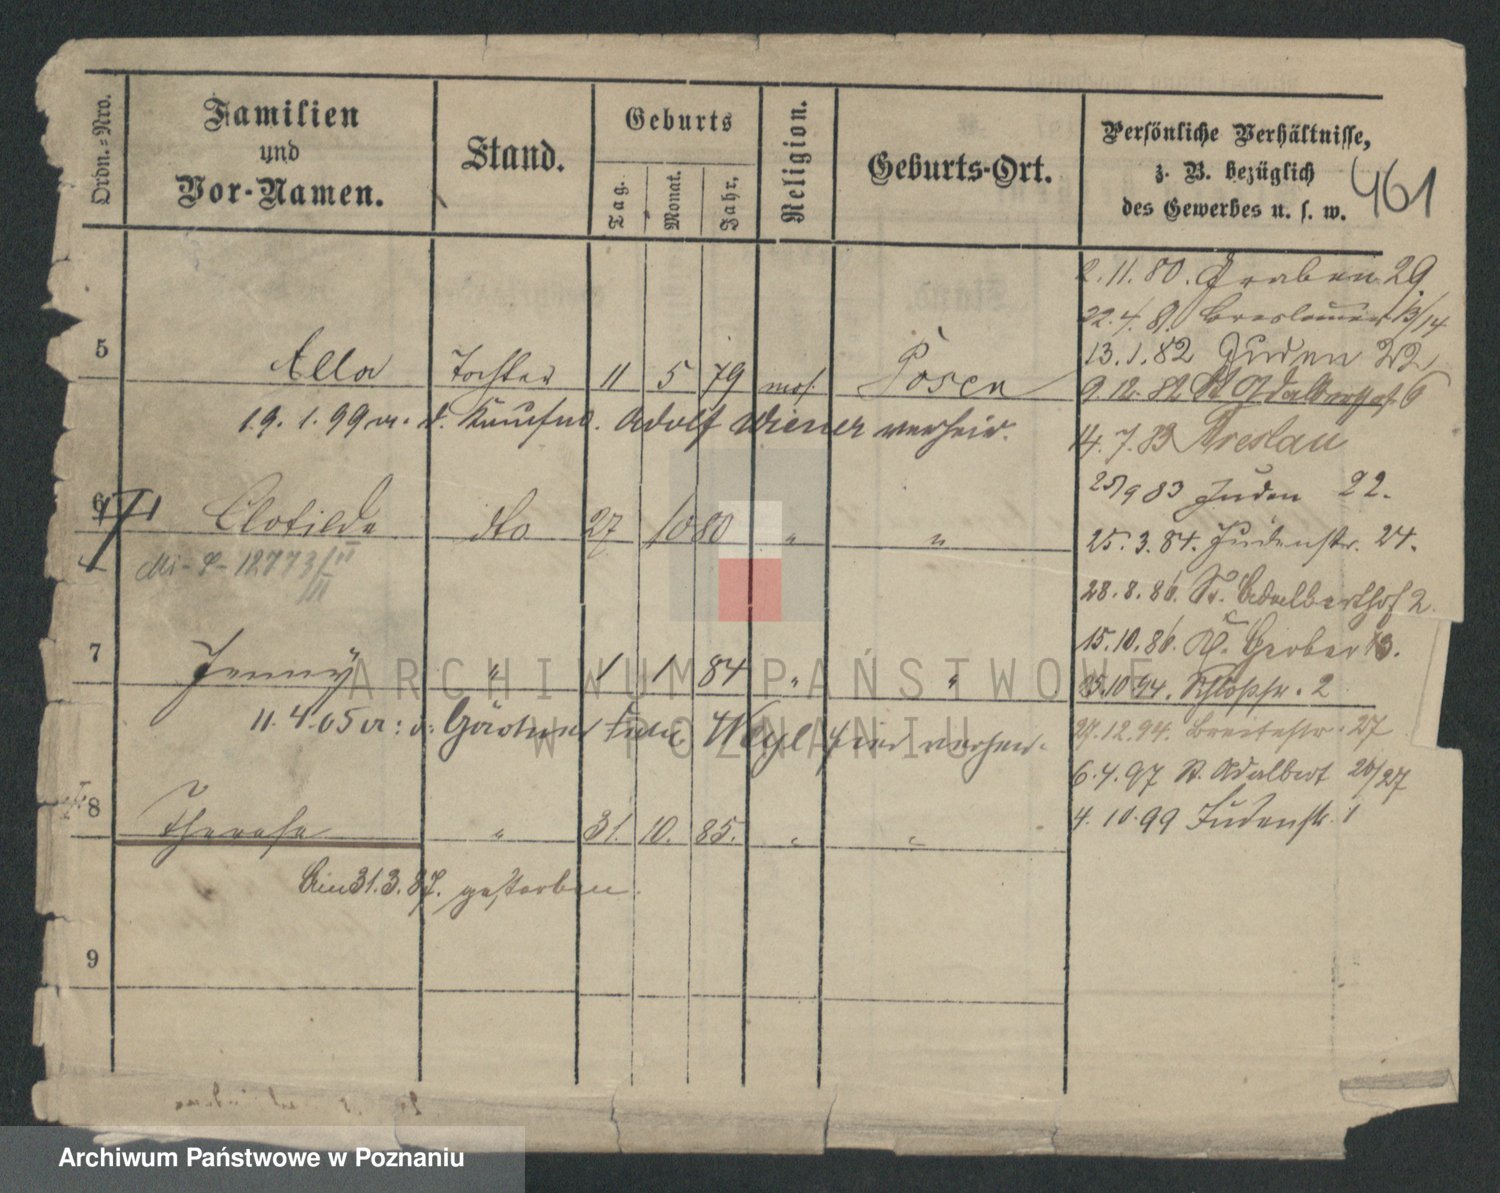 Ordn.-Nro.
Familien
und
Vor-Namen.
Stand.
Geburts
Tag.
Monat.
Jahr.
Religion.
Geburts-Ort.
Persönliche Verhältnisse,
z. B. bezüglich
des Gewerbes u. s. w.
461
2.11.80. Graben 29.
22.4.81 Breslauer 13/14
13.1.82 Juden 22
5 Ella Tochter 11 5 79 mos. Posen
9.12.82 St Adalberthof 6
19.1.99 m. d. Kaufm. Adolf Wiener verheir.
14.7.83 Breslau
25/9 83 Juden 22.
6 Clotilde dto 27 10 80 " "
25.3.84. Judenstr. 24.
12773
28.8.86. St. Adalberthof 2.
15.10.86. Kl. Gerber 3.
7 Jenny " 1 1 84 " "
25.10.94. Schloßstr. 2
11.4.05 m. d. Gärtner Weyl verheir.
27.12.94. Breitestr. 27
6.4.97 St. Adalbert 26/27
8 Therese " 31. 10. 85. " "
4.10.99 Judenstr. 1
Am 31.3.87. gestorben.
9
ARCHIWUM PAŃSTWOWE
W POZNANIU
Archiwum Państwowe w Poznaniu